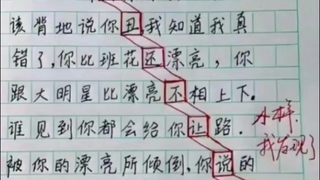 该背地说你丑,我知道我真
错了,你比班花还漂亮，你
跟大明星比漂亮不相上下。
谁见到你都会给你让路.
被你的漂亮所倾倒,你说的
小样.
我发现了